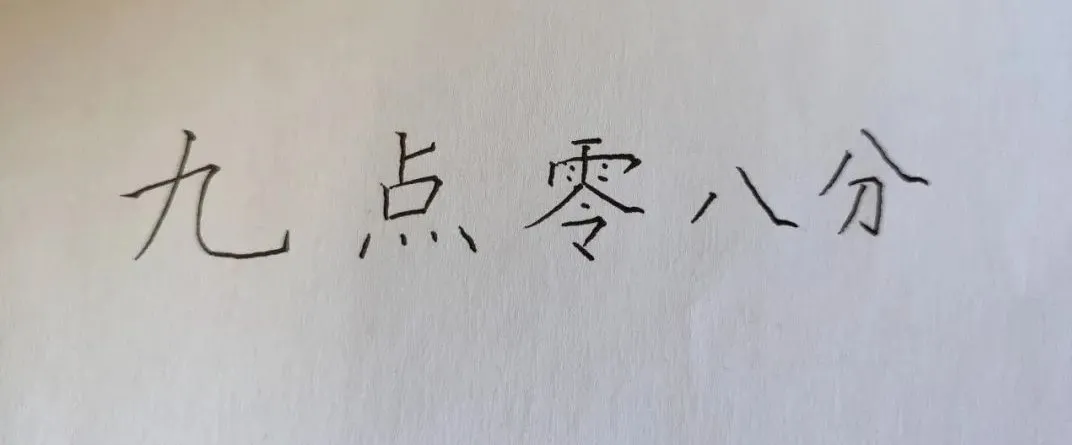 九点零八分